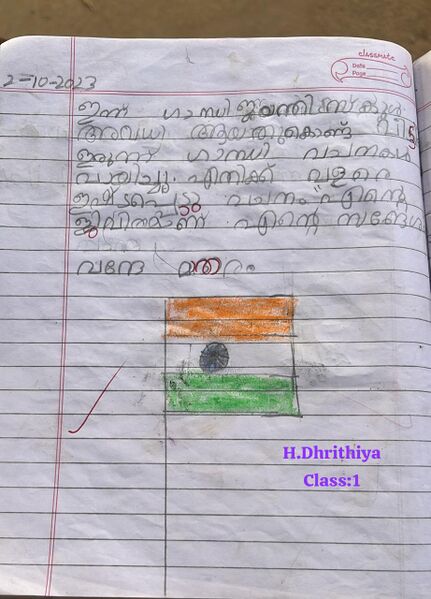 classmate
Date
Page
2-10-2023
ഇന്ന് ഗാന്ധി ജയന്തി സ്കൂൾ
അവധി ആയതുകൊണ്ട്
ഇരുന്ന് ഗാന്ധി വചനങ്ങൾ
പഠിച്ചു. എനിക്ക് വളരെ
ഇഷ്ടപ്പെട്ട വചനം എന്റെ
ജീവിതമാണ് എന്റെ സന്ദേശം
വന്ദേ മാതരം
H.Dhrithiya
Class:1